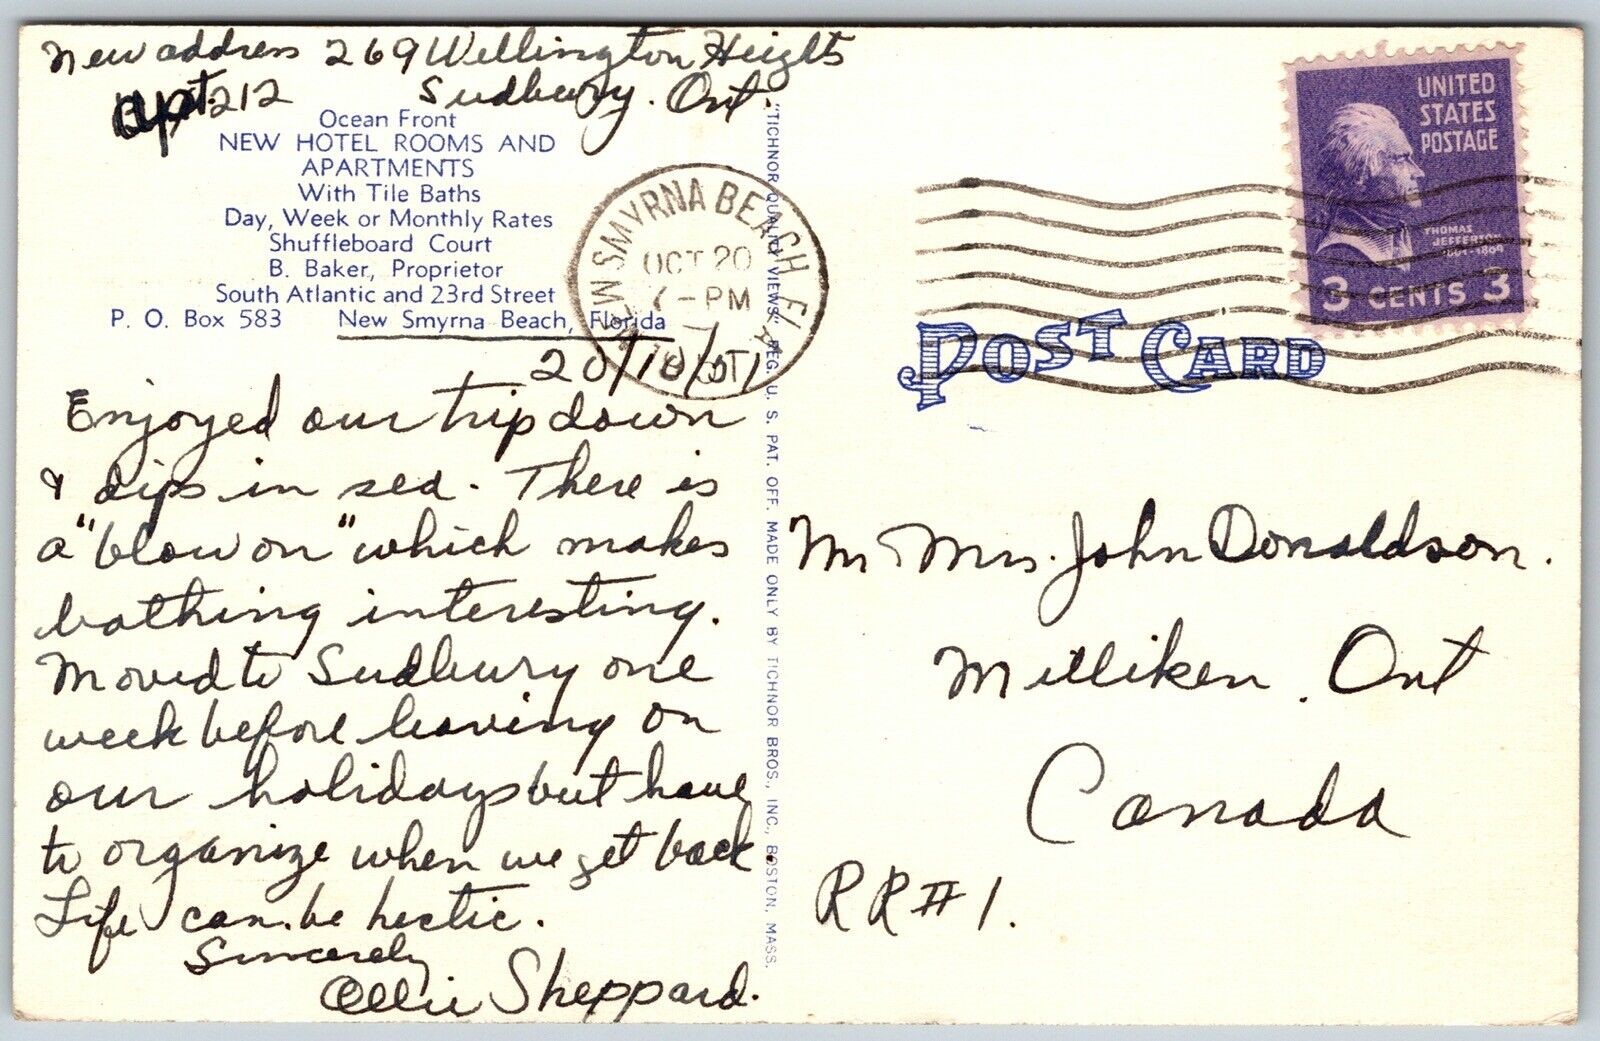 New address 269 Wellington Heights
apt. 212 Sudbury. Ont.
Ocean Front
NEW HOTEL ROOMS AND
APARTMENTS
With Tile Baths
Day, Week or Monthly Rates
Shuffleboard Court
B. Baker, Proprietor
South Atlantic and 23rd Street
P. O. Box 583 New Smyrna Beach, Florida
20/10/
Enjoyed our trip down
& dips in sea. There is
a "blow on" which makes
bathing interesting.
Moved to Sudbury one
week before leaving on
our holidays but have
to organize when we get back
Life can be hectic.
Sincerely
Ollie Sheppard.
"TICHNOR QUALITY VIEWS," REG. U. S. PAT. OFF. MADE ONLY BY TICHNOR BROS., INC., BOSTON, MASS.
NEW SMYRNA BEACH FLA
OCT 20
PM
UNITED
STATES
POSTAGE
THOMAS
JEFFERSON
1801-1809
3 CENTS 3
POST CARD
Mr Mrs. John Donaldson.
Milliken. Ont
Canada
RR#1.